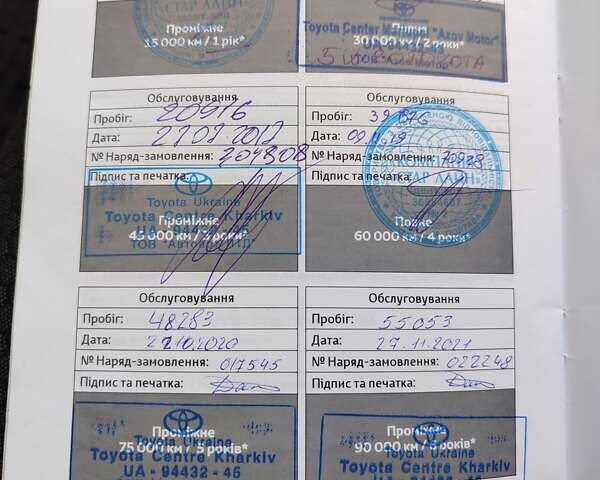 СТАР ЛАЙН
Проміжне
15 000 км / 1 рік*
Toyota Center "Azov Motor"
30 000 км / 2 роки*
Обслуговування
Пробіг: 20976
Дата:
№ Наряд-замовлення: 304808
Підпис та печатка:
Toyota Ukraine
Toyota Centre Kharkiv
Проміжне
UA - 94432 - 45
45 000 км / 3 роки*
Обслуговування
Пробіг:
Дата:
№ Наряд-замовлення:
Підпис та печатка:
СТАР ЛАЙН
Повне
60 000 км / 4 роки*
Обслуговування
Пробіг: 48283
Дата: 22.10.2020
№ Наряд-замовлення: 017545
Підпис та печатка:
Проміжне
Toyota Ukraine
75 000 км / 5 років*
Toyota Centre Kharkiv
UA - 94432 - 45
Обслуговування
Пробіг: 55053
Дата: 27.11.2021
№ Наряд-замовлення: 022248
Підпис та печатка:
Проміжне
90 000 км / 6 років*
Toyota Ukraine
Toyota Centre Kharkiv
UA - 94432 - 45